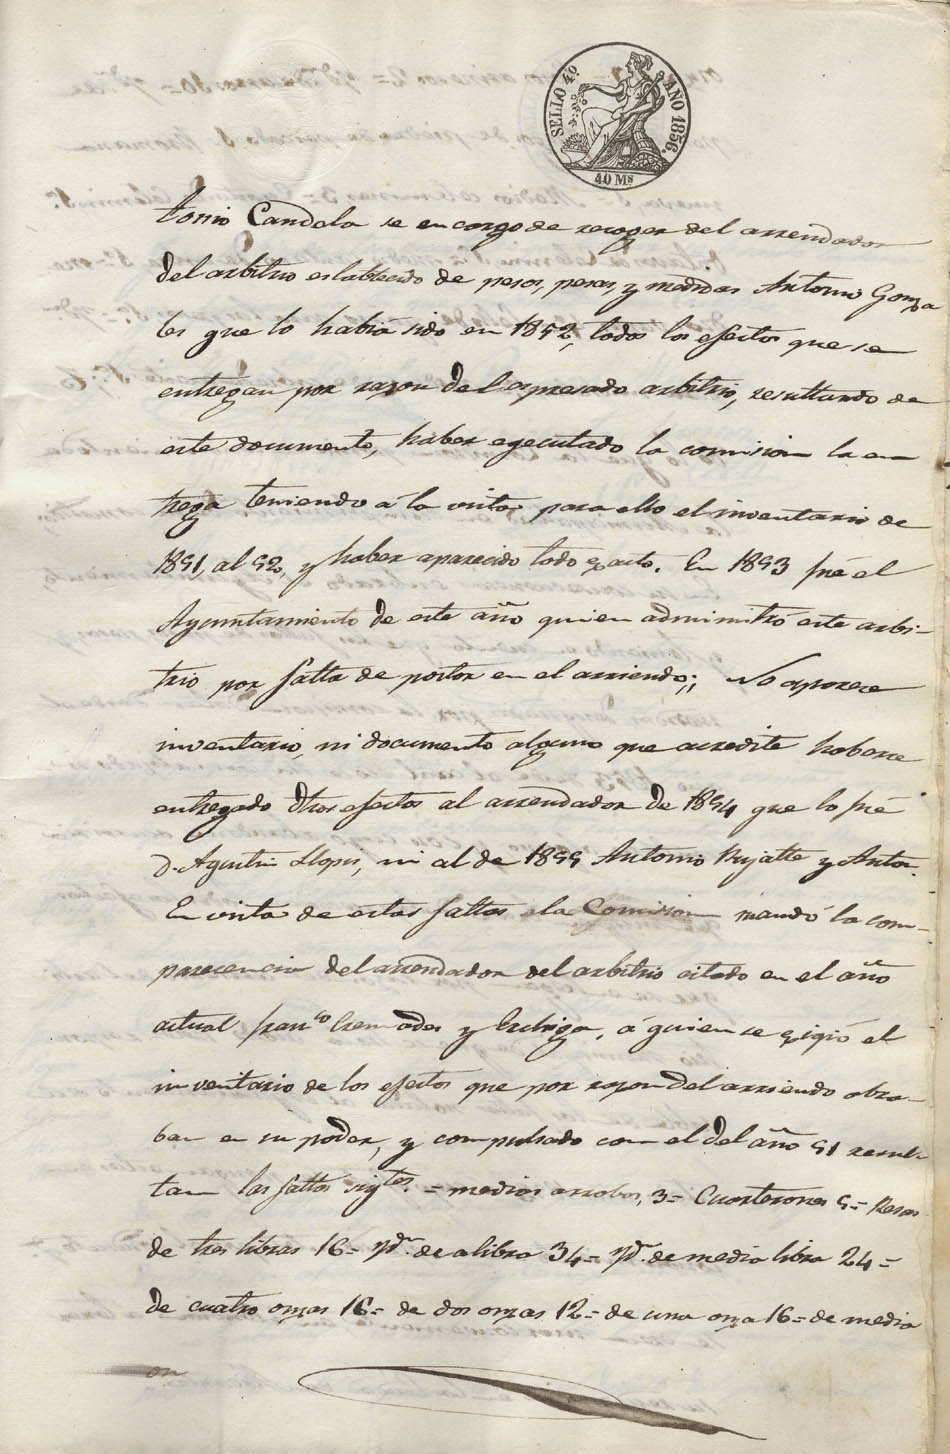 SELLO 4º. AÑO 1856.
40 Ms
tonio Candela se encargo de recoger del arrendador
del arbitrio establecido de pesos, pesas, y medidas Antonio Gonza
les que lo habia sido en 1852, todos los efectos que se
entregan por razon del espresado arbitrio, resultando de
este documento, haber egecutado la comision la en
trega teniendo á la vista para ello el inventario de
1851, al 52, y haber aparecido todo exacto. En 1853 fué el
Ayuntamiento de este año quien administró este arbi-
trio por falta de postor en el arriendo; No aparece
inventario, ni documento alguno que acredite haberse
entregado dhos efectos al arrendador de 1854 que lo fué
D. Agustin Llopis, ni al de 1855 Antonio y Anton.
En vista de estas faltas la Comision mandó la com-
parecencia del arrendador del arbitrio citado en el año
actual Franco y, á quien se egigió el
inventario de los efectos que por razon del arriendo obra-
ban en su poder, y compulsado con el del año 51 resul-
tan las faltas sigtes. = medias arrobas, 3= Cuarterones 5= Pesas
de tres libras 16= Yd. de a libra 34= Yd. de media libra 24=
de cuatro onzas 16= de dos onzas 12= de una onza 16= de media
on